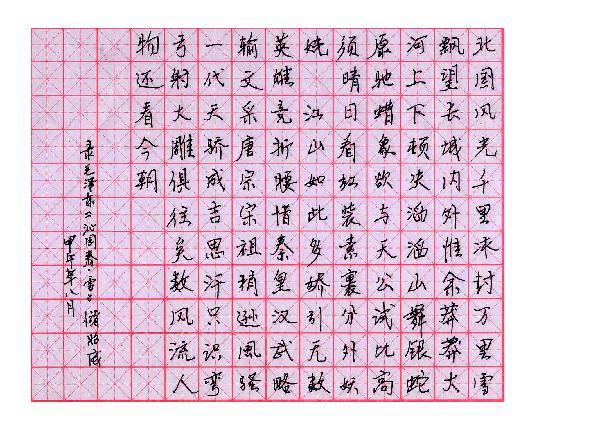 北国风光千里冰封万里雪
飘望长城内外惟余莽莽大
河上下顿失滔滔山舞银蛇
原驰蜡象欲与天公试比高
须晴日看红装素裹分外妖
娆 江山如此多娇引无数
英雄竞折腰惜秦皇汉武略
输文采唐宗宋祖稍逊風骚
一代天骄成吉思汗只识弯
弓射大雕俱往矣数风流人
物还看今朝
录毛泽东《沁园春·雪》
甲申年八月